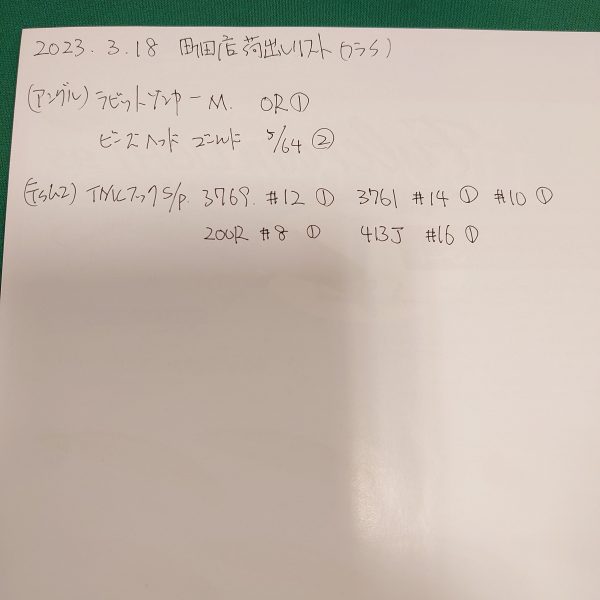 2023.3.18 町田店荷出しリスト(フラS)
(アングル) ラビットゾンカーM. OR①
ビーズヘッド ゴールド 5/64 ②
(ティムコ) TMCフックS/P. 3769. #12 ① 3761 #14 ① #10 ①
200R #8 ① 413J #16 ①